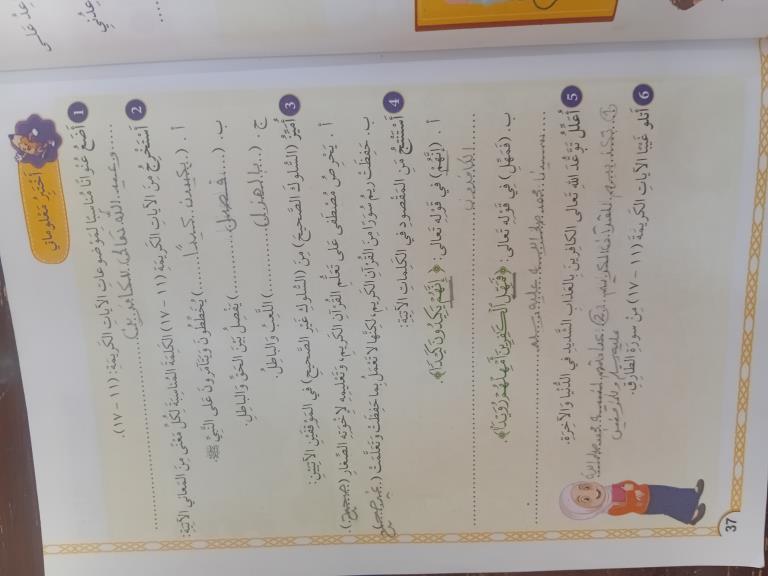 أَخْتَبِرُ مَعْلوماتي
1 أَضَعُ عُنْوانًا مُناسِبًا لِمَوْضوعاتِ الآياتِ الكَريمَةِ: (١١ - ١٧).
وعيد الله تعالى الكافرين
2 أَسْتَخْرِجُ مِنَ الآياتِ الكَريمَةِ (١١ - ١٧) الكَلِمَةَ المُناسِبَةَ لِكُلِّ مَعْنًى مِنَ المَعاني الآتِيَةِ:
أ . (يكيدون كيدًا) يُخَطِّطُونَ وَيَتَآمَرونَ عَلى النَّبِيِّ ﷺ.
ب. (فصل) يَفْصِلُ بَيْنَ الحَقِّ وَالباطِلِ.
ج. (بالهزل) اللَّعِبُ وَالباطِلُ.
3 أُمَيِّزُ (السُّلوكَ الصَّحيحَ) مِنَ (السُّلوكِ غَيْرِ الصَّحيحِ) في المَوْقِفَيْنِ الآتِيَيْنِ:
أ . يَحْرِصُ مُصْطَفى عَلى تَعَلُّمِ القُرْآنِ الكَريمِ، وَتَعْليمِهِ لِإِخْوَتِهِ الصِّغارِ (صحيح).
ب. حَفِظَتْ ريمُ سُوَرًا مِنَ القُرْآنِ الكَريمِ، لكِنَّها لا تَعْمَلُ بِما حَفِظَتْ وَتَعَلَّمَتْ (غير صحيح)
4 أَسْتَنْتِجُ مَنِ المَقْصودُ في الكَلِماتِ الآتِيَةِ:
أ . (إِنَّهُمْ) في قَوْلِهِ تَعالى: ﴿إِنَّهُمْ يَكِيدُونَ كَيْدًا﴾.
الكافرين
ب. (فَمَهِّلِ) في قَوْلِهِ تَعالى: ﴿فَمَهِّلِ الْكَافِرِينَ أَمْهِلْهُمْ رُوَيْدًا﴾.
سيدنا محمد صلى الله عليه وسلم
5 أُعَلِّلُ تَوَعُّدَ اللهِ تَعالى الكافِرينَ بِالعَذابِ الشَّديدِ في الدُّنْيا وَالآخِرَةِ.
① للقرآن الكريم ② محمد صلى الله
عليه وسلم
6 أَتْلو غَيْبًا الآياتِ الكَريمَةَ (١١ - ١٧) مِنْ سورَةِ الطّارِقِ.
37